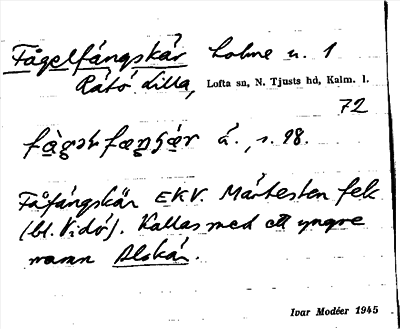 Fågelfångskär holme u. 1
Råtö Lilla, Lofta sn, N. Tjusts hd, Kalm. l.
72
å., s. 98.
Fåfängskär EKV. Mårtesten fek
(bl. Vidö). Kallas med ett yngre
namn Alskär.
Ivar Modéer 1945